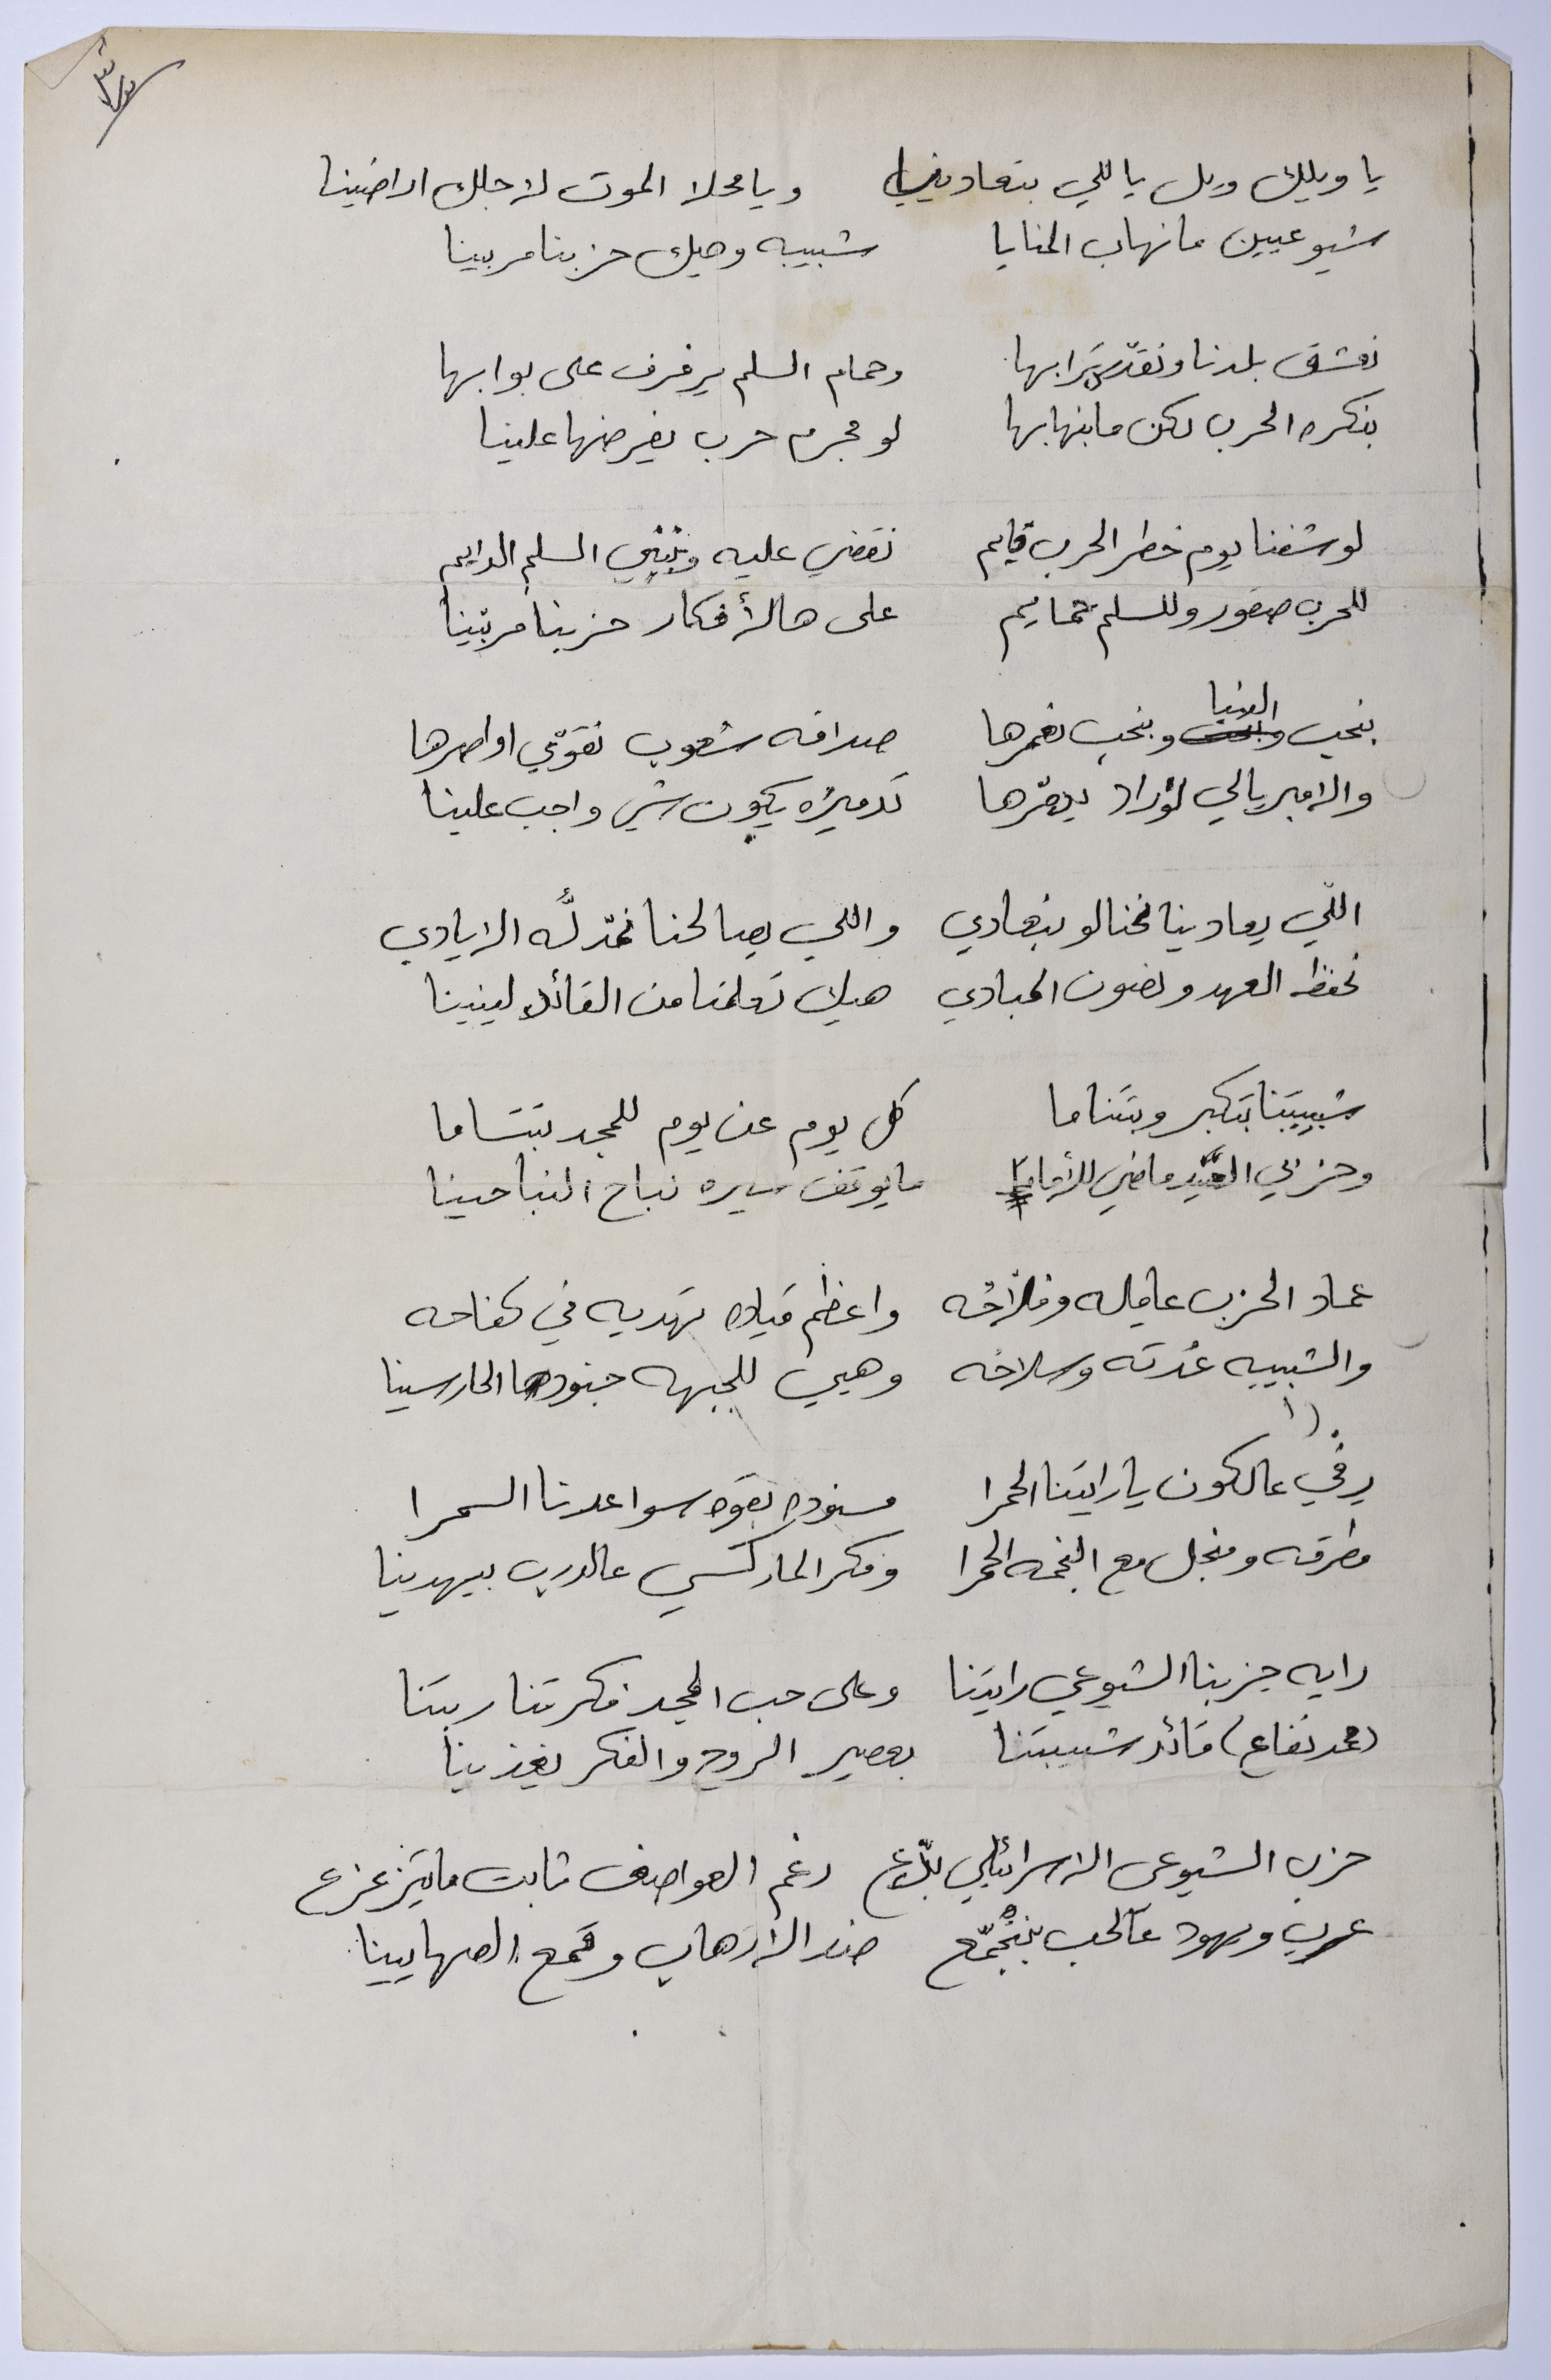 يا ويلك ويل ياللي بتعادينا ويا محلا الموت لاجلك اراضينا
شيوعيين ما نهاب المنايا شبيبه وهيك حزبنا مربينا
نعشق بلدنا ونقدّس ترابها وحمام السلم يرفرف على بوابها
بنكره الحرب لكن ما بنهابها لو مجرم حرب يفرضها علينا
لو شفنا يوم خطر الحرب قايم نقضي عليه ونبني السلم الدايم
للحرب صقور وللسلم حمايم على هالأفكار حزبنا مربّينا
بنحب الدنيا وبنحب نعمرها صداقه شعوب نقوّي اواصرها
والامبريالي لوراد يدمّرها تدميرُه بيكون شي واجب علينا
اللّي يعادينا نحنا لو بنعادي واللي يصالحنا نمدّ لَه الايادي
نحفظ العهد ونصون المبادي هيك تعلمنا من القائد لينينا
شبيبتنا بتكبر وبتتناما كل يوم عن يوم للمجد تتساما
وحزبي ماضي للأماما ما يوقف سيره نباح النباحينا
عماد الحزب عاماله وفلّاحُه واعظم قياده تهديه في كفاحه
والشبيبه عُدته وسلاحُه وهيي للجبهه جنودها الحارسينا
رفي عالكون يا رايتنا الحمرا مسنوده بقوه سواعدنا السمرا
مطرقه ومنجل مع النجمه الحمرا وفكر الماركسي عالدرب بيهدينا
رايه حزبنا الشيوعي رايتنا وعلى حب المجد فكرتنا ربتنا
(محمد نفاع) قائد شبيبتنا بعصير الروح والفكر يغذينا
حزب الشيوعي الاسرائيلي بلّاع رغم العواصف ثابت ما يتزعزع
عرب ويهود عالحب بنتجمّع ضد الارهاب وقمع الصهاينينا